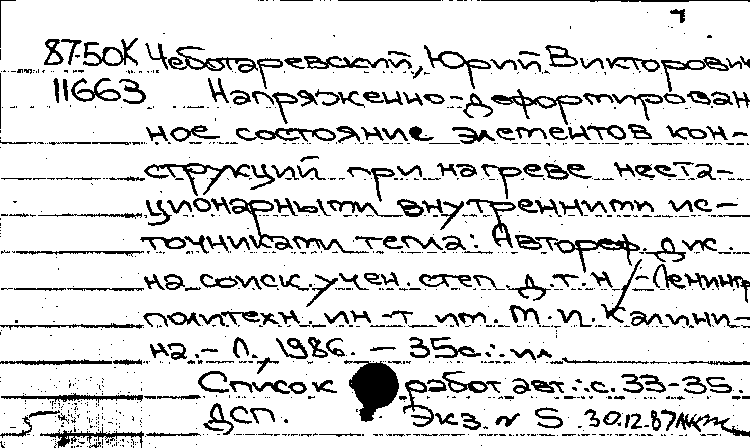 87-50К Чеботаревский, Юрий Викторович
11663 Напряженно-деформирован
ное состояние элементов кон-
струкций при нагреве неста-
ционарными внутренними ис-
точниками тепла: Автореф. дис.
на соиск. учен. степ. д.т.н./-Ленингр
политехн. ин-т им. М.И. Калини-
на.- Л., 1986. - 35с.: ил.
Список работ авт.: с. 33-35.
ДСП. Экз. N 5 30.12.87